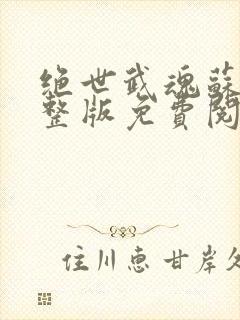 絶世武魂蘇
整版免費閱
住川恵 甘岸久